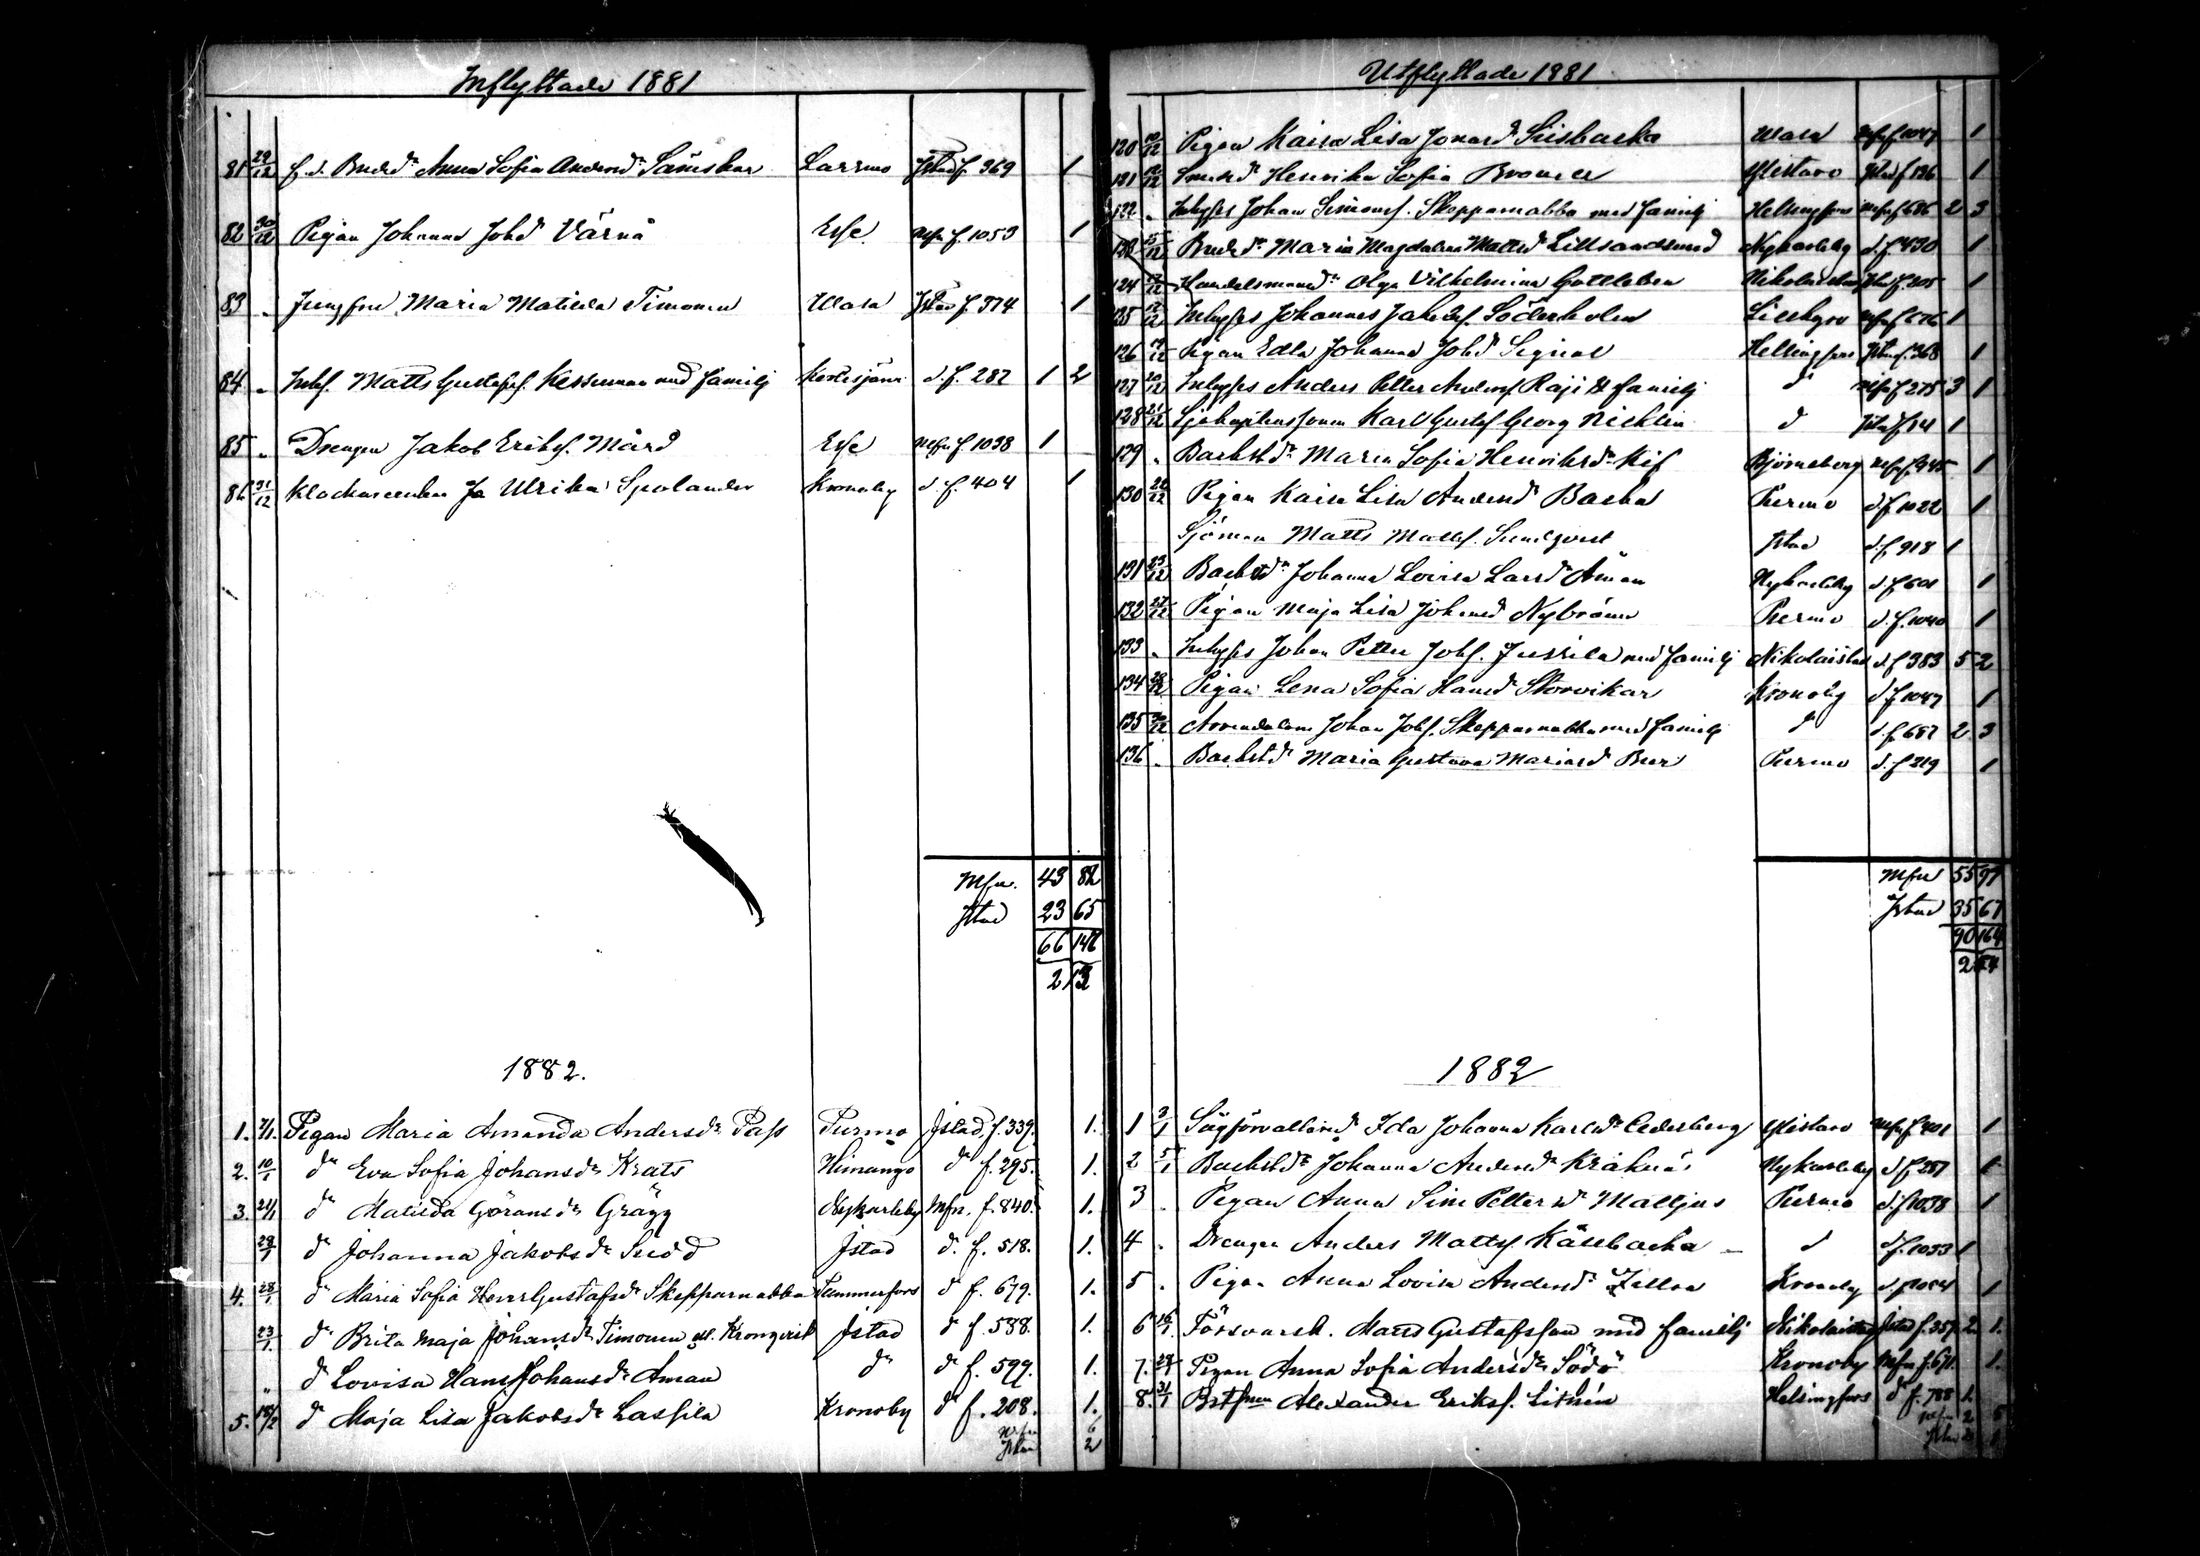 Inflyttade 1881
81 29/12 f.d. Bndrdr Anna Sofia Andersdr Sämskar Larsmo Jstad f. 369 1
82 30/12 Pigan Johanna Johd Värnå Esse Mfn f. 1053 1
83 " Jungfru Maria Matilda Timonen Wasa Jstad f. 374 1
84 " Inhs. Matts Gustafss. Kessuman med familj Kortesjärvi d. f. 287 1 2
85 " Drengen Jakob Erikss. Mård Esse Mfn f. 1038 1
86 31/12 Klockareenkan Ulrika Spolander Kronoby d. f. 404 1
Mfn. 43 82
Jstad 23 65
66 147
213
1882.
1. 7/1 Pigan Maria Amanda Andersdr Pass Purmo Jstad, f. 339. 1.
2. 10/1 dr Eva Sofia Johansdr Krats Himango dr f. 295. 1.
3. 21/1 dr Matilda Göransdr Grägg Nykarleby Mfn. f. 840. 1.
28/1 dr Johanna Jakobsdr Sved Jstad d. f. 518. 1.
4. 28/1 dr Maria Sofia Henr Gustafsdr Skepparnabba Tammerfors d f. 679. 1.
23/1. dr Brita Maja Johansdr Timonen el. Kronqvist Jstad d f. 588. 1.
" dr Lovisa Hans Johansdr Åman dr dr f. 599. 1.
5. 18/2 dr Maja Lisa Jakobsdr Lassila Kronoby dr f. 208. 1.
Mfn 6
Jstad 2
Utflyttade 1881
120 10/12 Pigan Kaisa Lisa Jonasd Siisbacka Wasa Mfn f. 1047 1
121 Henrika Sofia Bromer Ylistaro Jstad f 136 1
122 " Inhyses Johan Simonss. Skepparnabba med familj Helsingfors Mfn f 686 2 3
123 15/12 Bndrdr Maria Magdalena Mattsd Lillsandsund Nykarleby d. f. 430 1
124 17/12 Handelsmansdr Olga Vilhelmina Gottleben Nikolaistad Jstad f. 205 1
125 17/12 Inhyses Johannes Jakobss. Söderholm Lillkyro Mfn f 1
126 19/12 Pigan Edla Johanna Johd Signal Helsingfors Jstad f. 368 1
127 20/12 Inhyses Anders Petter Anderss. Raji & familj d Mfn f 275 3 1
128 21/12 Sjökaptenssonen Karl Gustaf Georg Nicklin d Jstad f. 14 1
129 " Backstdr Maria Sofia Henriksdr Kif Björneborg Mfn f. 345 1
130 22/12 Pigan Kaisa Lisa Andersd Backa Purmo d f 1022 1
Sjöman Matts Mattss. Sundqvist Jstad d. f. 918 1
131 23/12 Backstdr Johanna Lovisa Larsdr Åman Nykarleby d. f. 601 1
132 27/12 Pigan Maja Lisa Johansd Nybränn Purmo d. f. 1040 1
133 " Inhyses Johan Petter Johss. Jussila med familj Nikolaistad d. f 383 5 2
134 28/12 Pigan Lena Sofia Hansdr Storvikar Kronoby d. f 1047 1
135 30/12 Johan Johss. Skepparnabba med familj d d. f 687 2 3
136 " Backstdr Maria Gustava Mariasd Bur Purmo d. f 219 1
Mfn 55 97
Jstad 35 67
90 164
254
1882
1 3/1 Ida Johanna Karlsdr Cederberg Ylistaro Mfn f. 401 1
2 5/1 Backstdr Johanna Andersdr Kråknäs Nykarleby d f 257 1
3 " Pigan Anna Sim Pettersdr Mattjus Purmo d. f 1038 1
4 " Drengen Anders Mattss. Källbacka d d. f. 1033 1
5 " Pigan Anna Lovisa Andersdr Kronoby d. f 1054 1
6 16/1. Försvarsk. Matts Gustafsson med familj Nikolaistad Jstad f. 357. 2. 1.
7. 24/1 Pigan Anna Sofia Andersdr Södö Kronoby Mfn f. 671. 1.
8. 31/1 Bstman Alexander Erikss. Lithén Helsingfors d f. 788 1.
Mfn 2 5
Jstad 2 1